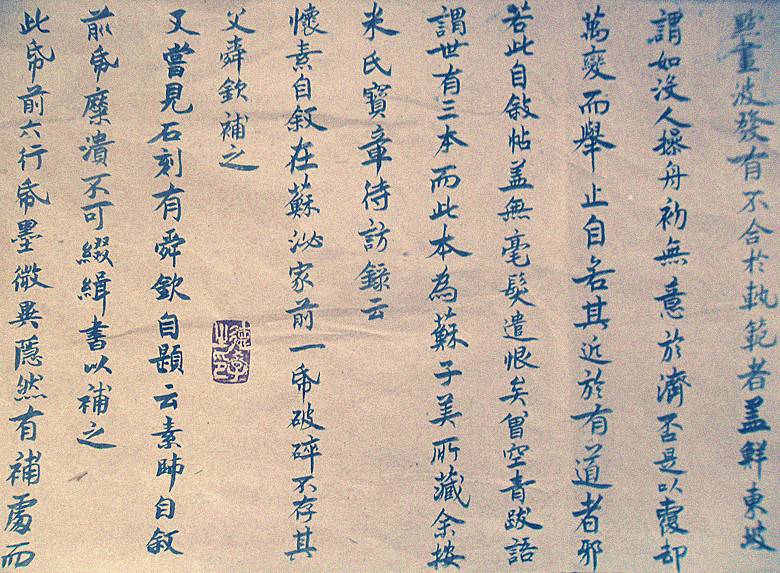 點畫波發有不合於軌範者蓋鮮東坡
謂如沒人操舟初無意於濟否是以覆却
萬變而舉止自若其近於有道者邪
若此自敘帖蓋無毫髮遺恨矣曾空青跋語
謂世有三本而此本為蘇子美所藏余按
米氏寶章待訪錄云
懷素自敘在蘇泌家前一帋破碎不存其
父舜欽補之
又嘗見石刻有舜欽自題云素師自敘
前帋糜潰不可綴緝書以補之
此帋前六行帋墨微異隱然有補處而